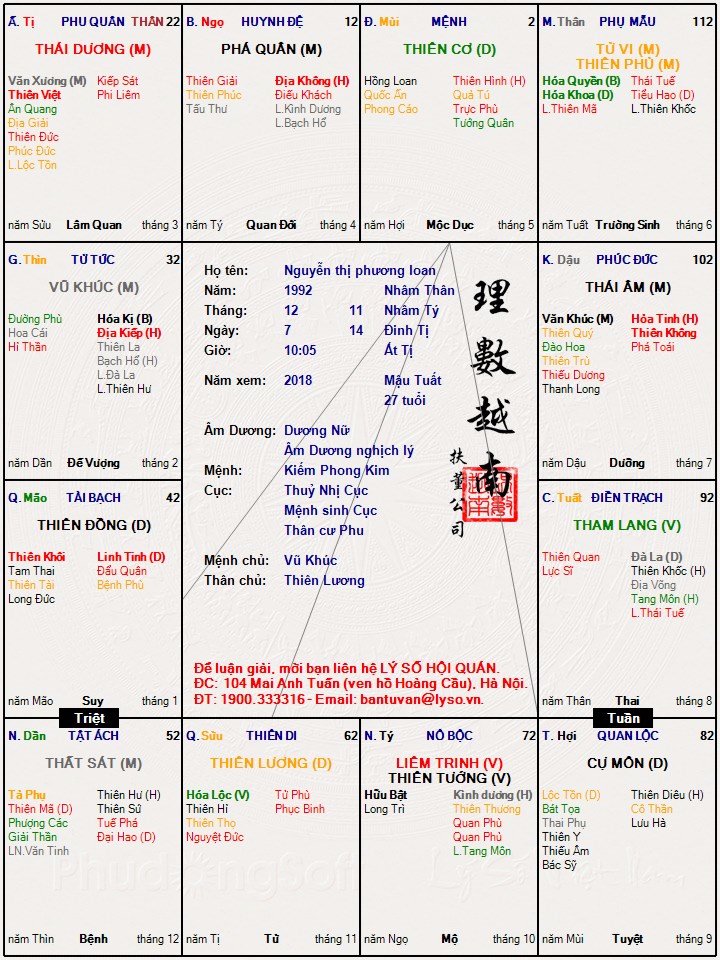 Ấ. Tị PHU QUÂN THÂN 22
THÁI DƯƠNG (M)
Văn Xương (M) Kiếp Sát
Thiên Việt Phi Liêm
Ân Quang
Địa Giải
Thiên Đức
Phúc Đức
L.Lộc Tồn
năm Sửu Lâm Quan tháng 3
B. Ngọ HUYNH ĐỆ 12
PHÁ QUÂN (M)
Thiên Giải Địa Không (H)
Thiên Phúc Điếu Khách
Tấu Thư L.Kình Dương
L.Bạch Hổ
năm Tý Quan Đới tháng 4
Đ. Mùi MỆNH 2
THIÊN CƠ (D)
Hồng Loan Thiên Hình (H)
Quốc Ấn Quả Tú
Phong Cáo Trực Phù
Tướng Quân
năm Hợi Mộc Dục tháng 5
M. Thân PHỤ MẪU 112
TỬ VI (M)
THIÊN PHỦ (M)
Hóa Quyền (B) Thái Tuế
Hóa Khoa (D) Tiểu Hao (D)
L.Thiên Mã L.Thiên Khốc
năm Tuất Trường Sinh tháng 6
G. Thìn TỬ TỨC 32
VŨ KHÚC (M)
Đường Phù Hóa Kị (B)
Hoa Cái Địa Kiếp (H)
Hỉ Thần Thiên La
Bạch Hổ (H)
L.Đà La
L.Thiên Hư
năm Dần Đế Vượng tháng 2
Họ tên: Nguyễn thị phương loan
Năm: 1992 Nhâm Thân
Tháng: 12 11 Nhâm Tý
Ngày: 7 14 Đinh Tị
Giờ: 10:05 Ất Tị
Năm xem: 2018 Mậu Tuất
27 tuổi
Âm Dương: Dương Nữ
Âm Dương nghịch lý
Mệnh: Kiếm Phong Kim
Cục: Thuỷ Nhị Cục
Mệnh sinh Cục
Thân cư Phu
Mệnh chủ: Vũ Khúc
Thân chủ: Thiên Lương
理數越南
扶董公司
Để luận giải, mời bạn liên hệ LÝ SỐ HỘI QUÁN.
ĐC: 104 Mai Anh Tuấn (ven hồ Hoàng Cầu), Hà Nội.
ĐT: 1900.333316 - Email: bantuvan@lyso.vn.
K. Dậu PHÚC ĐỨC 102
THÁI ÂM (M)
Văn Khúc (M) Hỏa Tinh (H)
Thiên Quý Thiên Không
Đào Hoa Phá Toái
Thiên Trù
Thiếu Dương
Thanh Long
năm Dậu Dưỡng tháng 7
Q. Mão TÀI BẠCH 42
THIÊN ĐỒNG (D)
Thiên Khôi Linh Tinh (D)
Tam Thai Đẩu Quân
Thiên Tài Bệnh Phù
Long Đức
năm Mão Suy tháng 1
C. Tuất ĐIỀN TRẠCH 92
THAM LANG (V)
Thiên Quan Đà La (D)
Lực Sĩ Thiên Khốc (H)
Địa Võng
Tang Môn (H)
L.Thái Tuế
năm Thân Thai tháng 8
Triệt
Tuần
N. Dần TẬT ÁCH 52
THẤT SÁT (M)
Tả Phụ Thiên Hư (H)
Thiên Mã (D) Thiên Sứ
Phượng Các Tuế Phá
Giải Thần Đại Hao (D)
LN.Văn Tinh
năm Thìn Bệnh tháng 12
Q. Sửu THIÊN DI 62
THIÊN LƯƠNG (D)
Hóa Lộc (V) Tử Phù
Thiên Hỉ Phục Binh
Thiên Thọ
Nguyệt Đức
năm Tị Tử tháng 11
N. Tý NÔ BỘC 72
LIÊM TRINH (V)
THIÊN TƯỚNG (V)
Hữu Bật Kình dương (H)
Long Trì Thiên Thương
Quan Phù
Quan Phủ
L.Tang Môn
năm Ngọ Mộ tháng 10
T. Hợi QUAN LỘC 82
CỰ MÔN (D)
Lộc Tồn (D) Thiên Diêu (H)
Bát Tọa Cô Thần
Thai Phụ Lưu Hà
Thiên Y
Thiếu Âm
Bác Sỹ
năm Mùi Tuyệt tháng 9